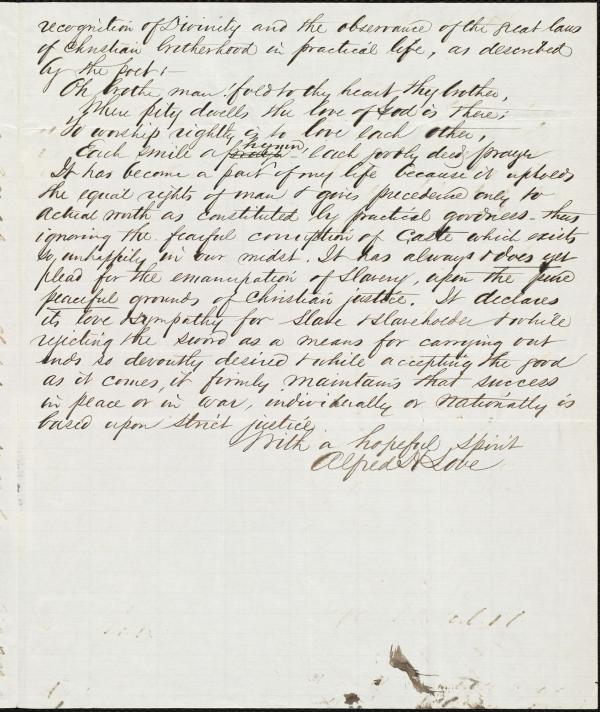 recognition of Divinity and the observance of the great laws
of Christian brotherhood in practical life, as described
by the poet :-
Oh brother man! fold to thy heart thy brother,
Where pity dwells the love of God is there;
To worship rightly is to love each other,
Each smile a hymn, each goodly deed prayer
It has become a part of my life because it upholds
the equal rights of man & gives precedence only to
actual worth as constituted by practical goodness. thus
ignoring the fearful conception of Caste which exists
so, unhappily in our midst. It has always & does yet
plead for the emancipation of Slavery, upon the pure
peaceful grounds of Christian justice. It declares
its love & sympathy for Slave & Slaveholder & while
rejecting the sword as a means for carrying out
ends so devoutly desired & while accepting the good
as it comes, it firmly maintains that success
in peace or in war, individually or Nationally is
based upon strict justice.
With a hopeful spirit
Alfred H Love